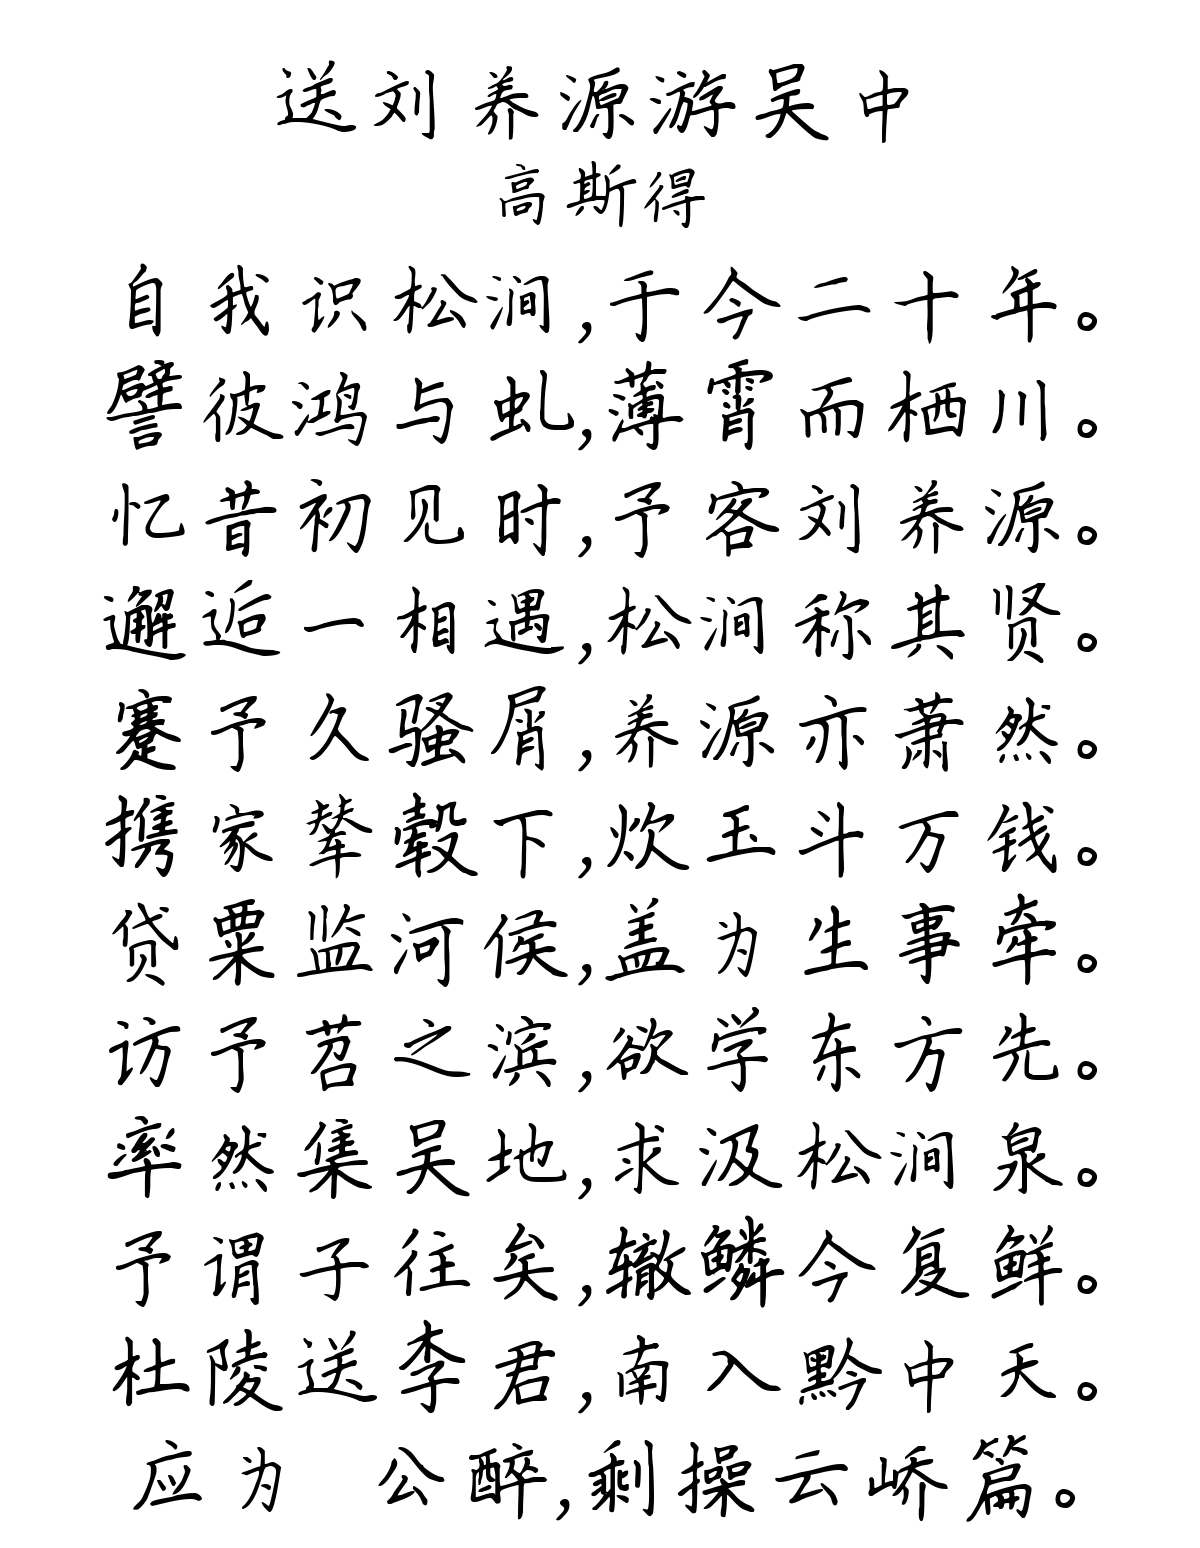 送刘养源游吴中
高斯得
自我识松涧,于今二十年。
譬彼鸿与虬,薄霄而栖川。
忆昔初见时,予客刘养源。
邂逅一相遇,松涧称其贤。
蹇予久骚屑,养源亦萧然。
携家辇毂下,炊玉斗万钱。
贷粟监河侯,盖为生事牵。
访予苕之滨,欲学东方先。
率然集吴地,求汲松涧泉。
予谓子往矣,辙鳞今复鲜。
杜陵送李君,南入黔中天。
应为 公醉,剩操云峤篇。